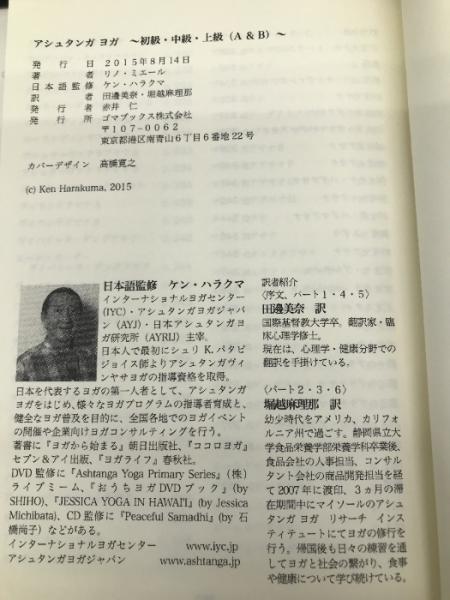 アシュタンガ ヨガ ～初級・中級・上級（A & B）～
発行日 2015年8月14日
著者 リノ・ミエール
日本語監修 ケン・ハラクマ
訳者 田邊美奈・堀越麻理那
発行者 赤井 仁
発行所 ゴマブックス株式会社
〒107-0062
東京都港区南青山6丁目6番地22号
カバーデザイン 高橋寛之
(c) Ken Harakuma, 2015
日本語監修 ケン・ハラクマ
インターナショナルヨガセンター
(IYC)・アシュタンガヨガジャパ
ン (AYJ)・日本アシュタンガヨ
ガ研究所 (AYRIJ) 主宰。
日本人で最初にシュリ K. パタビ
ジョイス師よりアシュタンガヴィ
ンヤサヨガの指導資格を取得。
日本を代表するヨガの第一人者として、アシュタンガ
ヨガをはじめ、様々なヨガプログラムの指導者育成と、
健全なヨガ普及を目的に、全国各地でのヨガイベント
の開催や企業向けヨガコンサルティングを行う。
著書に『ヨガから始まる』朝日出版社、『ココロヨガ』
セブン＆アイ出版、『ヨガライフ』春秋社。
DVD 監修に『Ashtanga Yoga Primary Series』（株）
ライブミーム、『おうちヨガDVDブック』(by
SHIHO)、『JESSICA YOGA IN HAWAII』(by Jessica
Michibata)、CD 監修に『Peaceful Samadhi』(by 石
橋尚子) などがある。
インターナショナルヨガセンター www.iyc.jp
アシュタンガヨガジャパン www.ashtanga.jp
訳者紹介
〈序文、パート1・4・5〉
田邊美奈 訳
国際基督教大学卒。翻訳家・臨
床心理学修士。
現在は、心理学・健康分野での
翻訳を手掛けている。
〈パート2・3・6〉
堀越麻理那 訳
幼少時代をアメリカ、カリフォ
ルニア州で過ごす。静岡県立大
学食品栄養学部栄養学科卒業後、
食品会社の人事担当、コンサル
タント会社の商品開発担当を経
て2007年に渡印、3ヵ月の滞
在期間中にマイソールのアシュ
タンガ ヨガ リサーチ インス
ティテュートにてヨガの修行を
行う。帰国後も日々の練習を通
してヨガと社会の繋がり、食事
や健康について学び続けている。